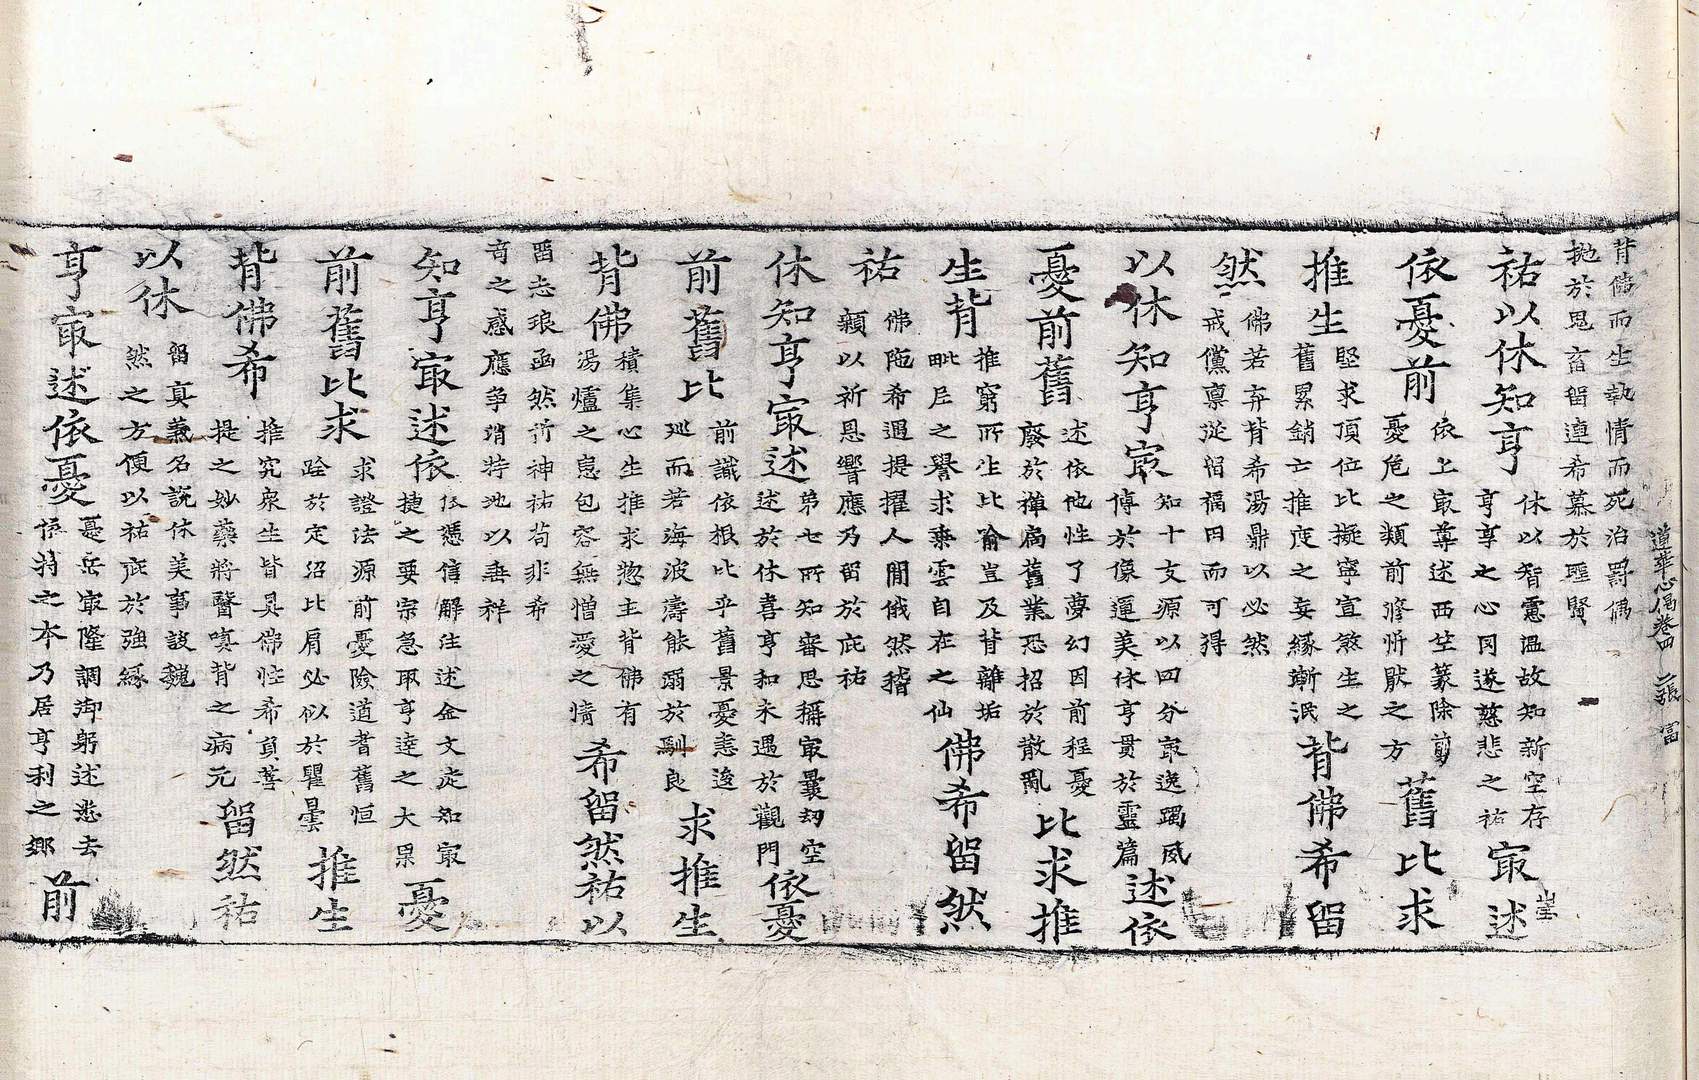 道華心偈卷四 二張 富
背佛而生執情而死治罰偶
拋於思音留連希慕於聖賢
祐以休知亨
休以智慮溫故知新空存
亨享之心同遂慈悲之祐
㝡述
依憂前
依上㝡尊述西竺篆除剪
憂危之類前脩忻猒之方
舊比求
推生
堅求頂位比擬寧宣煞生之
舊累銷亡推度之妄緣漸泯
背佛希留
然
佛若弃背希湯鼎以必然
戒儻禀從留福田而可得
以休知亨㝡
知十支源以四分㝡逸躅威
博於像運美休亨貫於靈篇
述依
憂前舊
述依他性了夢幻因前程憂
廢於禪扃舊業恐招於散亂
比求推
生背
推窮所生比喻豈及背離垢
毗尼之譽求乘雲自在之仙
佛希留然
祐
佛陁希遇提擢人閒俄然稽
顙以祈恩響應乃留於庇祐
休知亨㝡述
弟七所知審思稱㝡曩劫空
述於休喜亨和未遇於觀門
依憂
前舊比
前識依根比乎舊景憂恚逡
巡而若海波濤能溺於馴良
求推生
背佛
積集心生推求惣主背佛有
湯爐之恖包容無憎愛之情
希留然祐以
留恙琅函然祈神祐苟非希
奇之感應爭消特地以垂祥
知亨㝡述依
依憑信解注述金文定知㝡
捷之要宗急取亨逵之大果
憂
前舊比求
求證法源前憂險道耆舊恒
詮於定沼比肩必似於瞿曇
推生
背佛希
推究衆生皆具佛性希負菩
提之妙藥將醫嗔背之病元
留然祐
以休
留真義名說休美事詖巍
然之方便以祐庇於強緣
亨㝡述依憂
憂岳㝡隆調御躬述悉去
依特之本乃居亨利之鄉
前